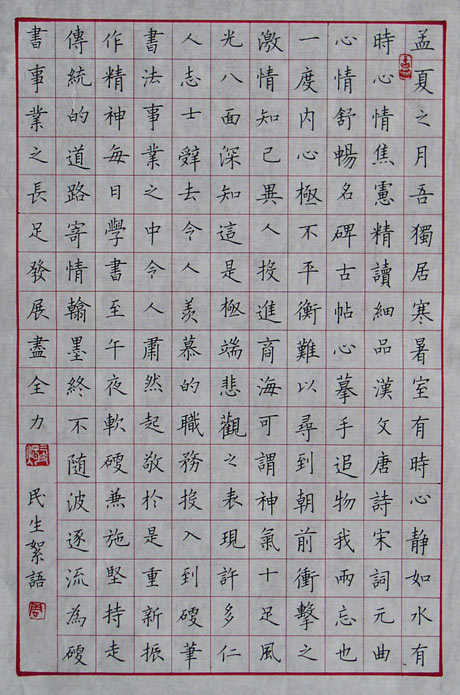 孟夏之月吾獨居寒暑室有時心靜如水有
時心情焦憲精讀細品漢文唐詩宋詞元曲
心情舒暢名碑古帖心摹手追物我兩忘也
一度內心極不平衡難以尋到朝前衝擊之
激情知己異人投進商海可謂神氣十足風
光八面深知這是極端悲觀之表現許多仁
人志士辭去令人羨慕的職務投入到硬筆
書法事業之中令人肅然起敬於是重新振
作精神每日學書至午夜軟硬兼施堅持走
傳統的道路寄情翰墨終不隨波逐流為硬
書事業之長足發展盡全力
民生絮語